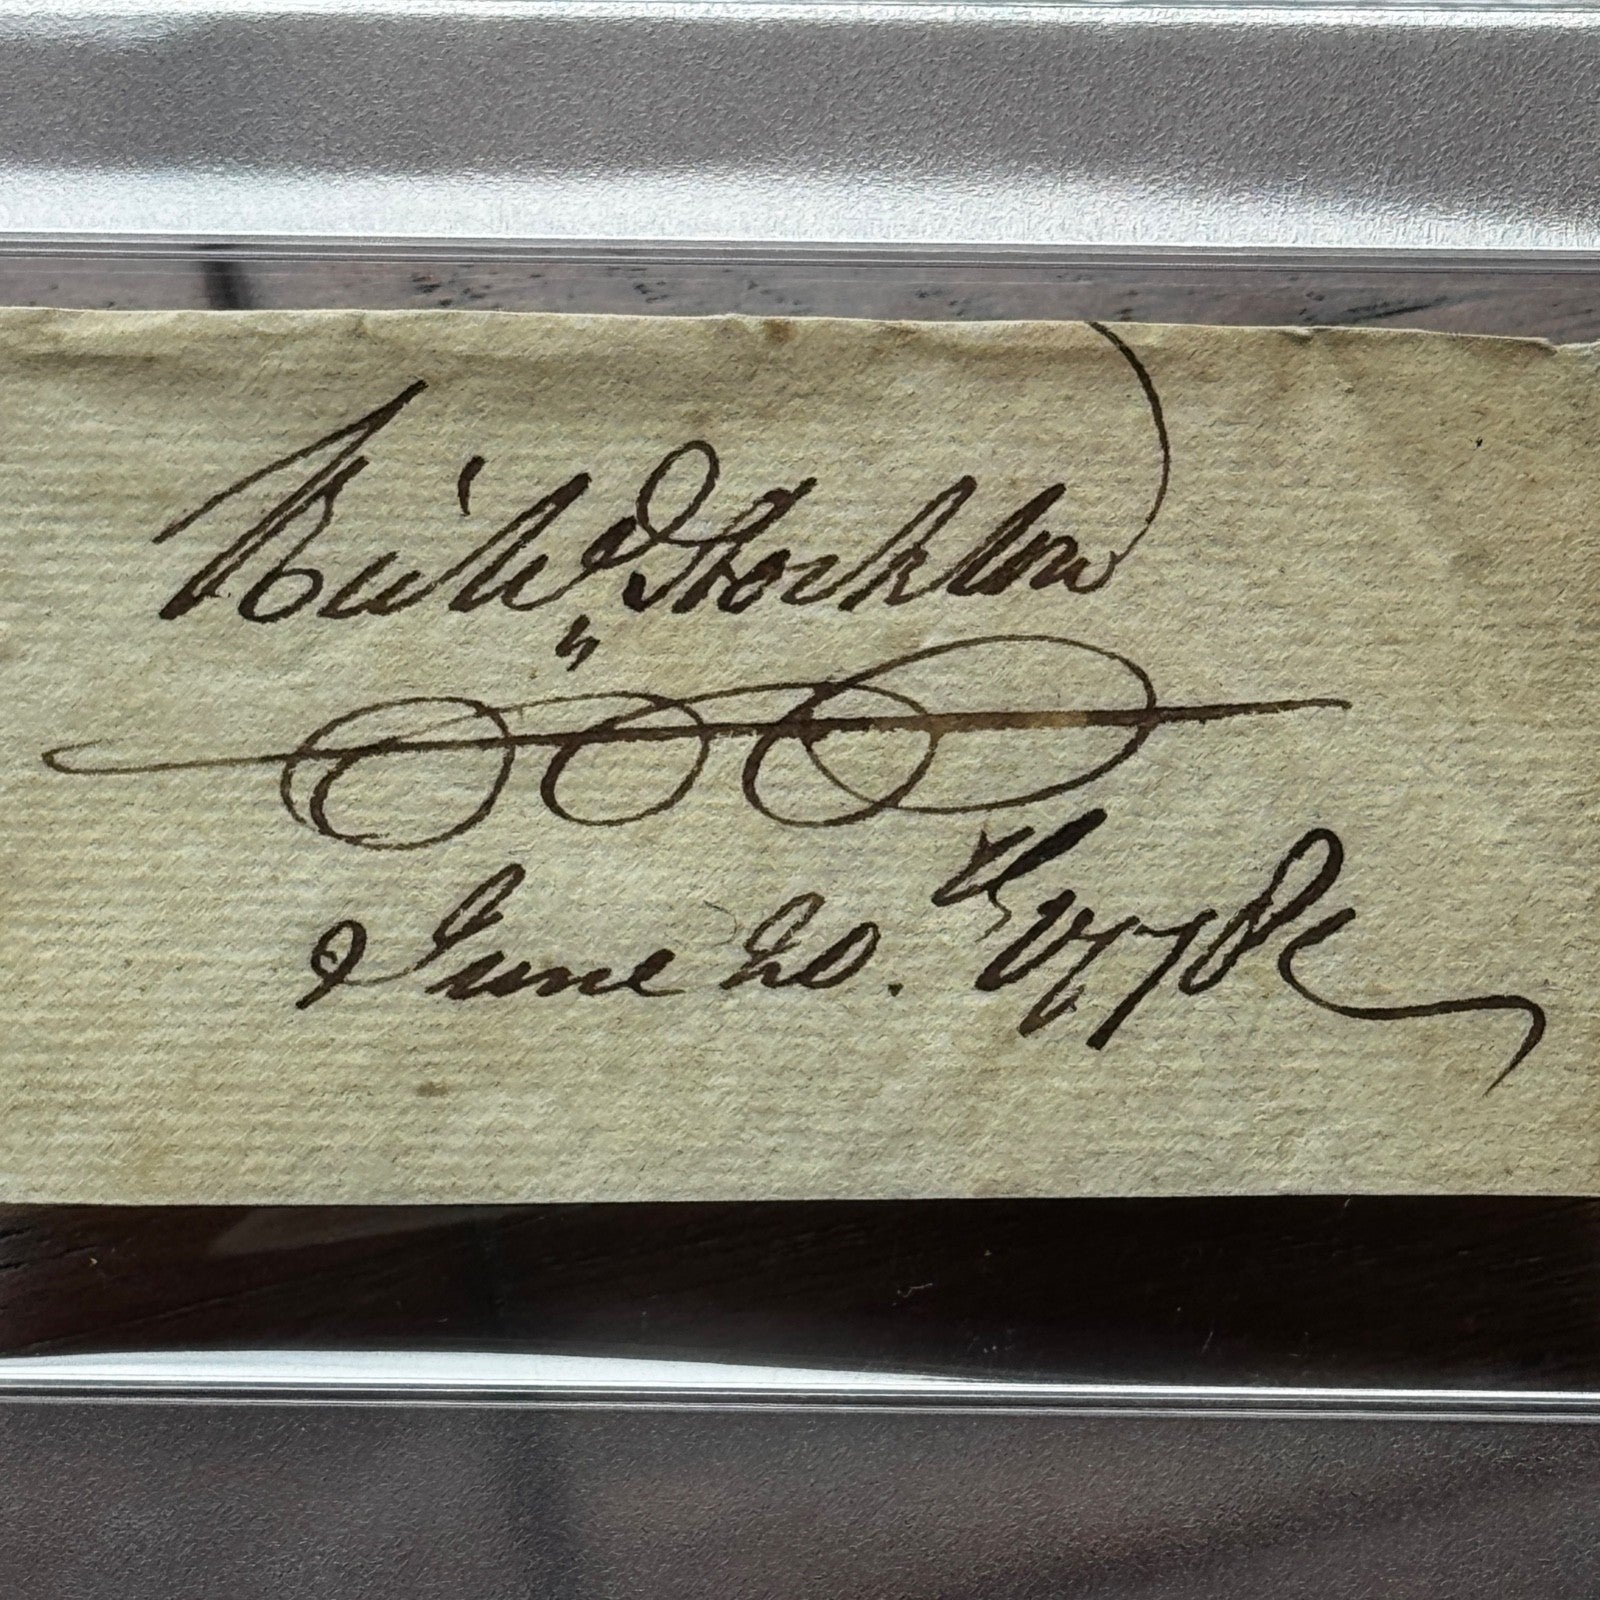 Rich.d Stockton
June 20.th 1778